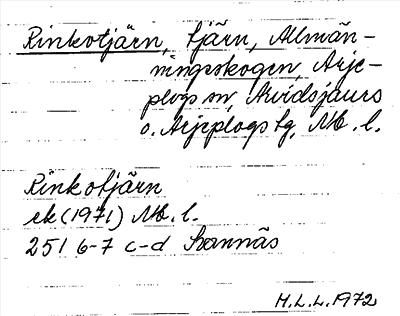 Rinkotjärn, tjärn, Allmän-
ningsskogen, Arje-
plogs sn, Arvidsjaurs
o. Arjeplogs tg, Nb. l.
Rinkotjärn
ek (1971) Nb. l.
25 I 6-7 c-d Stannäs
H.L.L. 1972